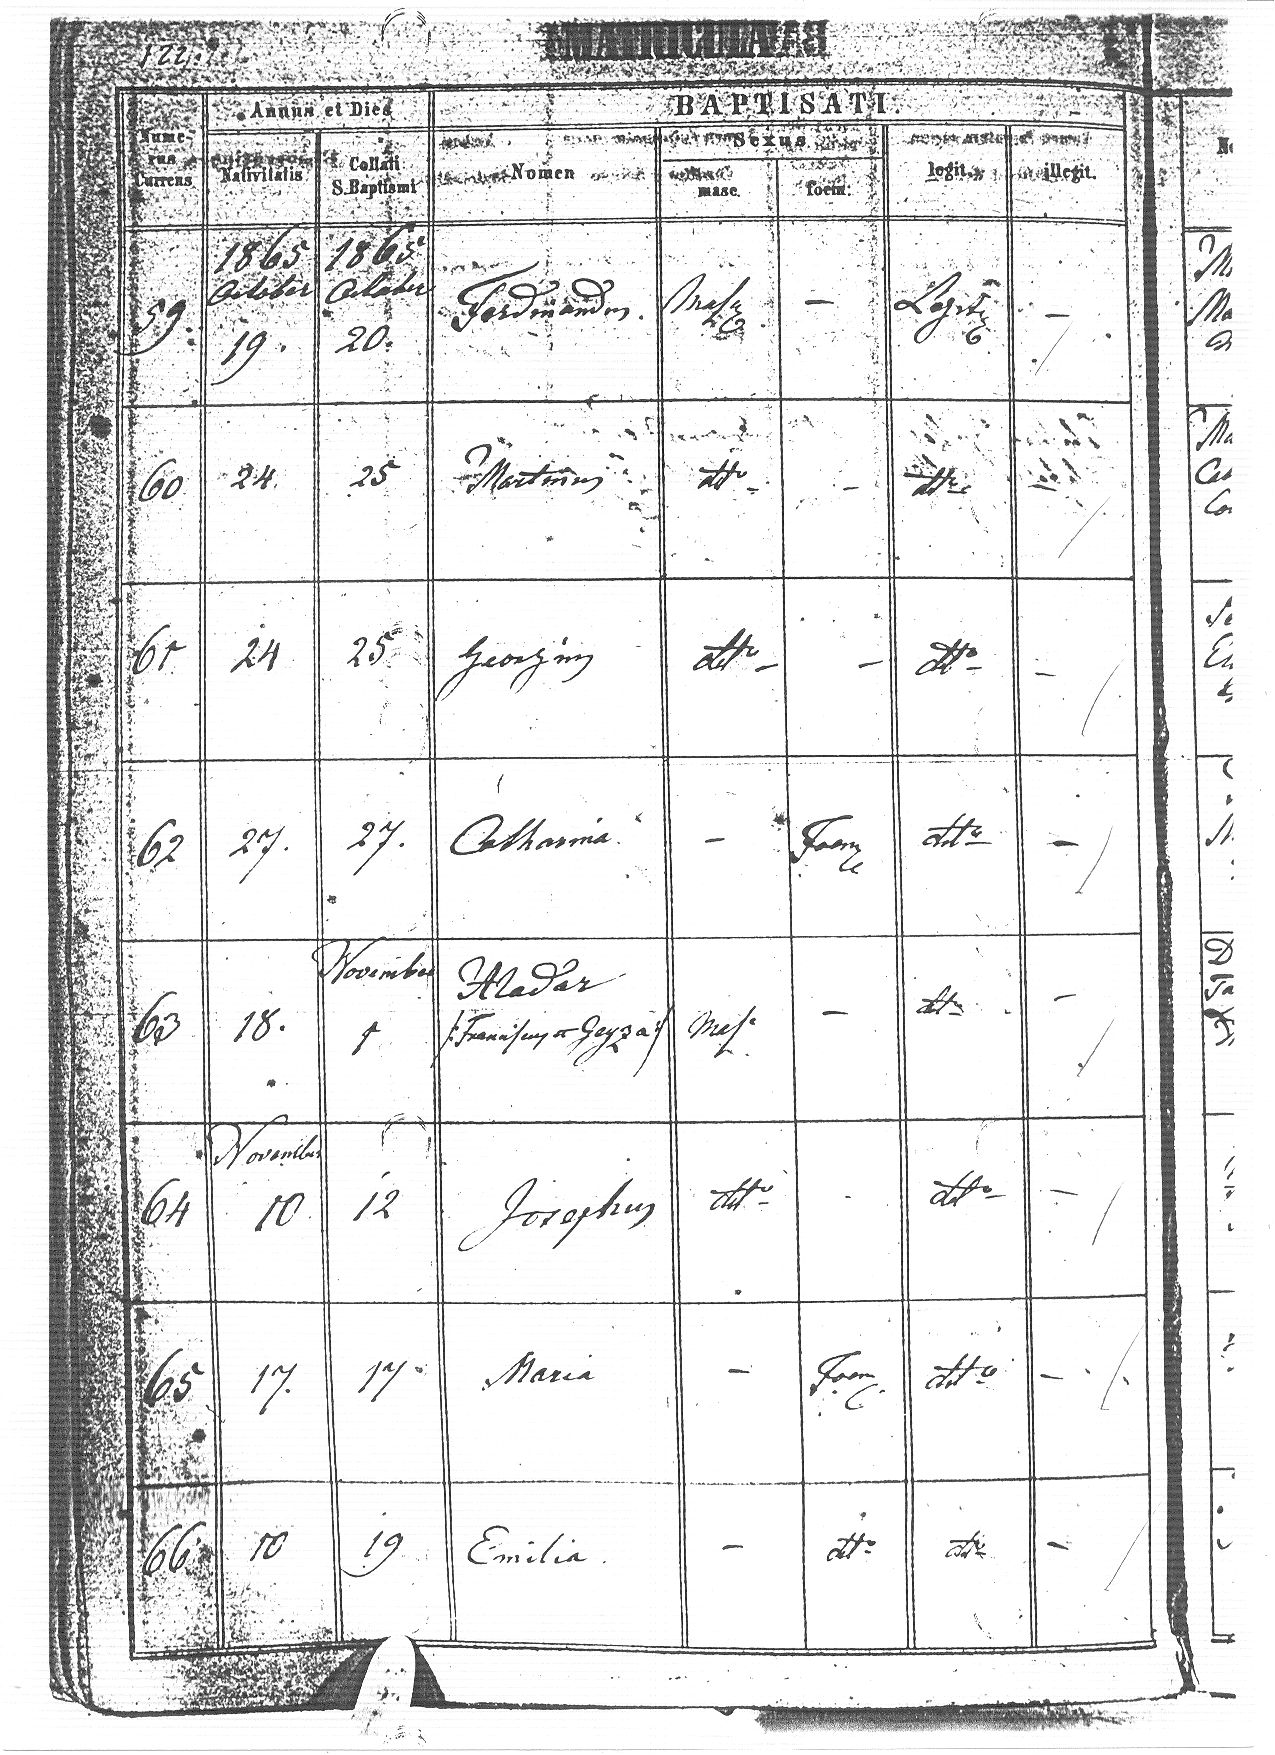 122.
MATRICULA BA
BAPTISATI.
Annus et Dies
Nume-
rus
Currens
Nativitatis
Collati
S. Baptismi
Nomen
Sexus
masc.
foem.
legit.
illegit.
59. 1865 October 19. 1865 October 20. Ferdinandus. Masc — Legit —
60 24. 25 Martinus ditto — ditto —
61 24 25 Georgius ditto — ditto —
62 27. 27. Catharina — Foem ditto —
63 18. November 1 Aladár
/: Franciscus et Geyza :/ Masc — ditto —
64 November 10 12 Josephus ditto ditto —
65 17. 17. Maria — Foem ditto —
66 10 19 Emilia — ditto ditto —